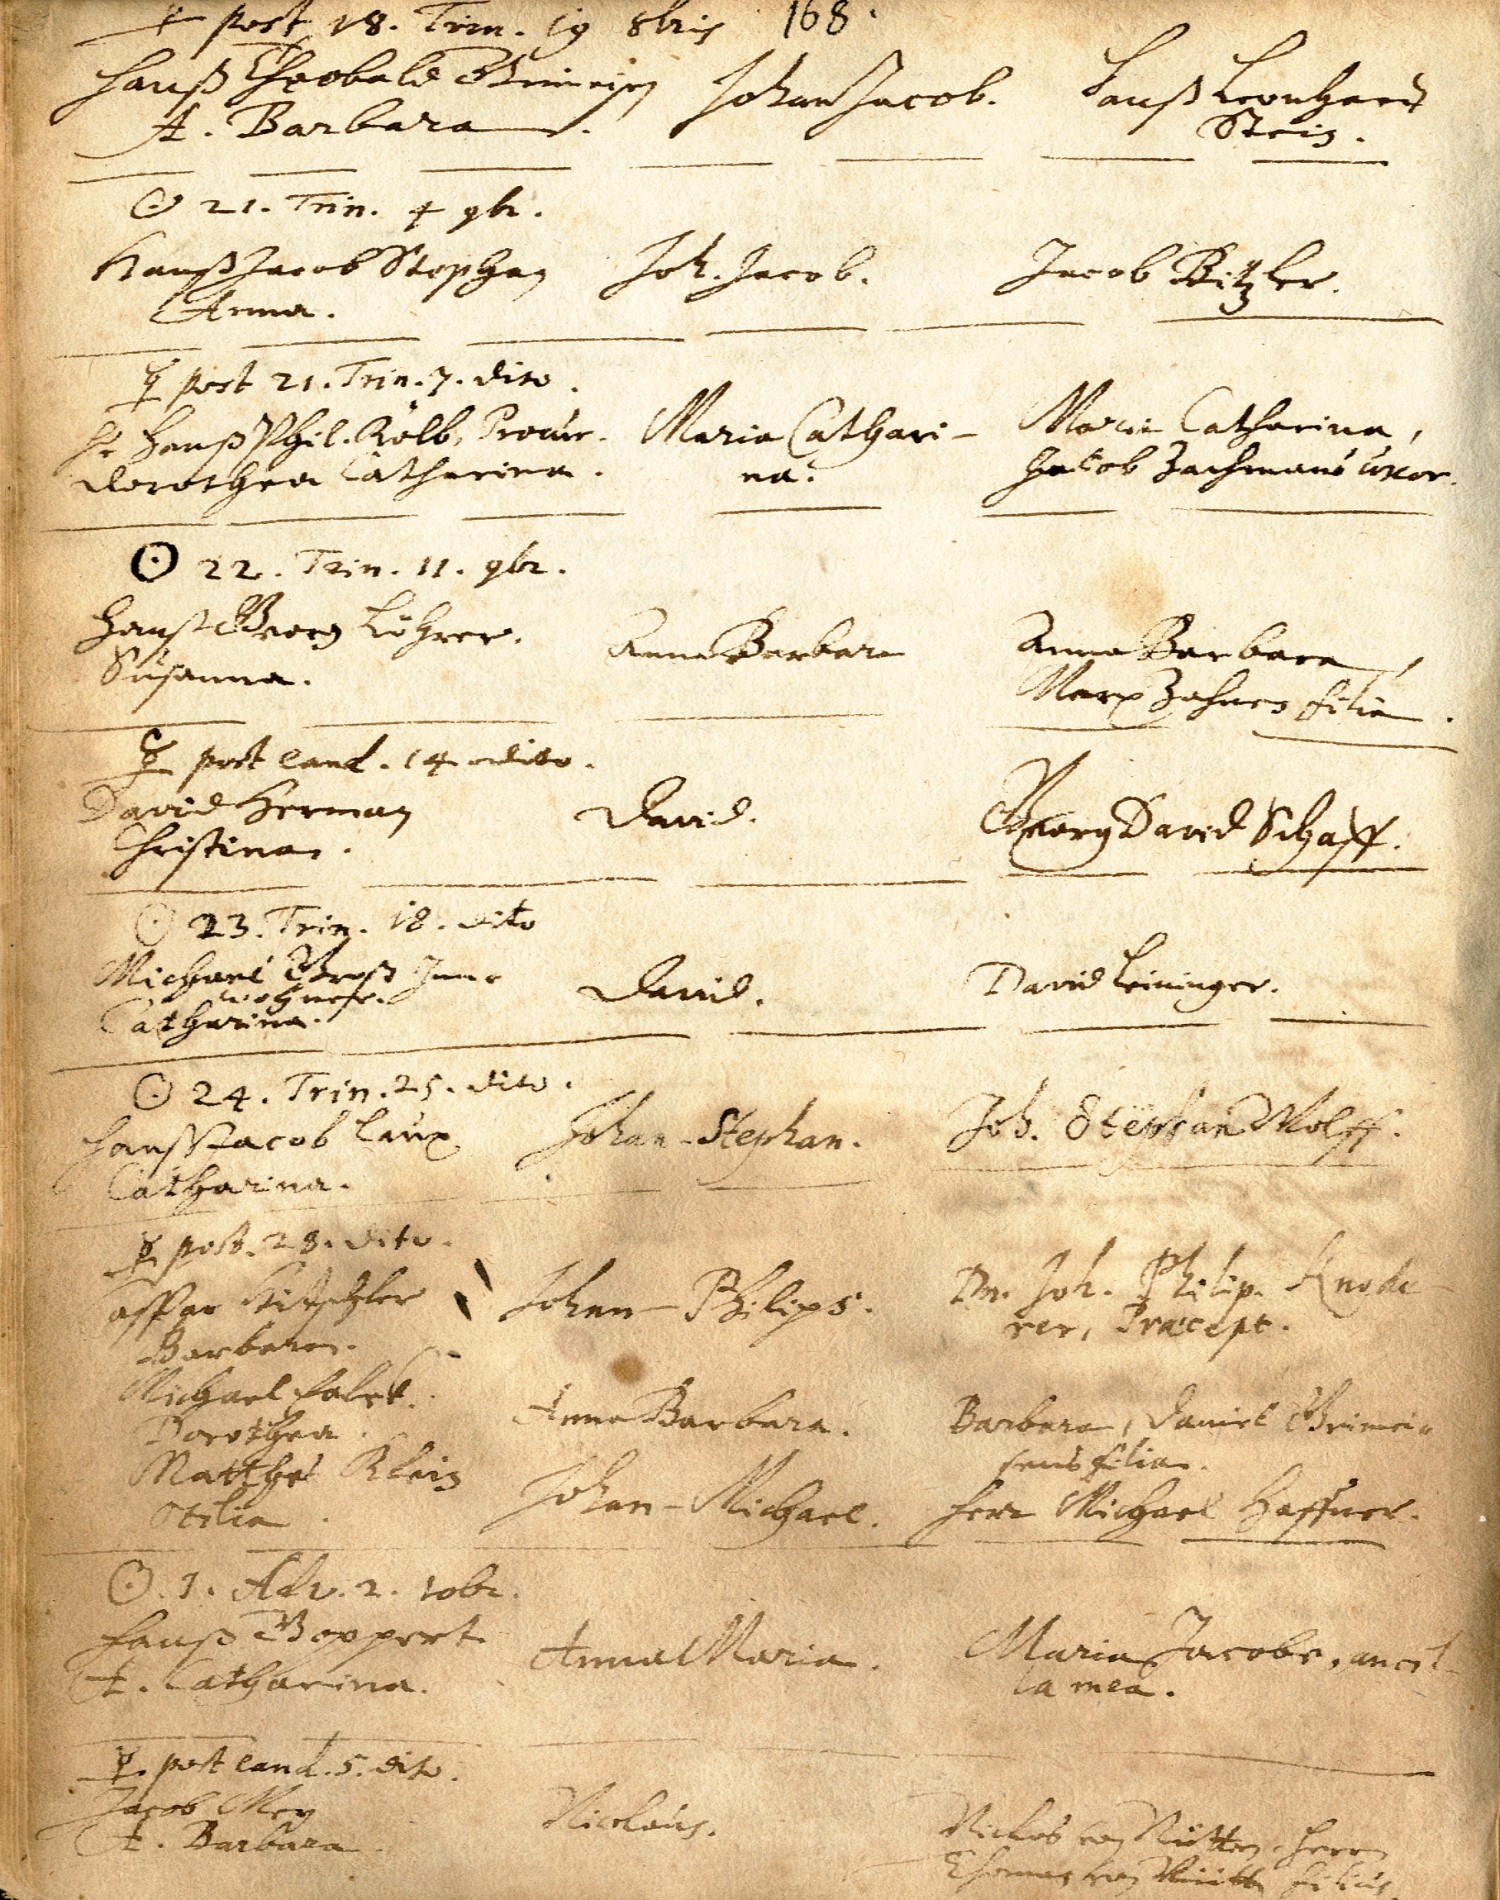 ☿ post 18. Trin. 19 8bris 168.
Hanß Theobald Grimeisen Johan Jacob. Hanß Leonhard
A. Barbara. Stein.
☉ 21. Trin. 4 9br.
Hanß Jacob Stephan Joh. Jacob. Jacob Bitzler.
Anna.
☿ post 21. Trin. 7. dito.
Hr Hanß Phil. Kolb, Procur. Maria Cathari- Maria Catharina,
Dorothea Catharina. na. Jacob Zachmans uxor.
☉ 22. Trin. 11. 9br.
Hanß Georg Löhrer. Anna Barbara Anna Barbara,
Susanna. Marx Zahnes filia.
☿ post eand. 14 dito.
David Herman David. Georg David Schaff.
Christina.
☉ 23. Trin. 18. dito
Michael Groß Inn- David. David Leininger.
wohner.
Catharina.
☉ 24. Trin. 25. dito.
Hanß Jacob Laux Johan-Stephan. Joh. Stephan Wolff.
Catharina.
☿ post. 28. dito.
Caspar Johan Philips. Dn. Joh. Philip. Knode-
Barbara. rer, Præcept.
Michael Falck. Anna Barbara. Barbara, Daniel Grimei-
Dorothea. sens filia.
Matthes Klein Johan-Michael. Herr Michael Haffner.
Otilia.
☉. 1. Adv. 2. 10br.
Hanß Boppert Anna Maria. Maria Jacobe, ancil-
A. Catharina. la mea.
☿. post eand. 5. dito.
Jacob Mey Nicolaus. Herrn
A. Barbara. Thomas filius.